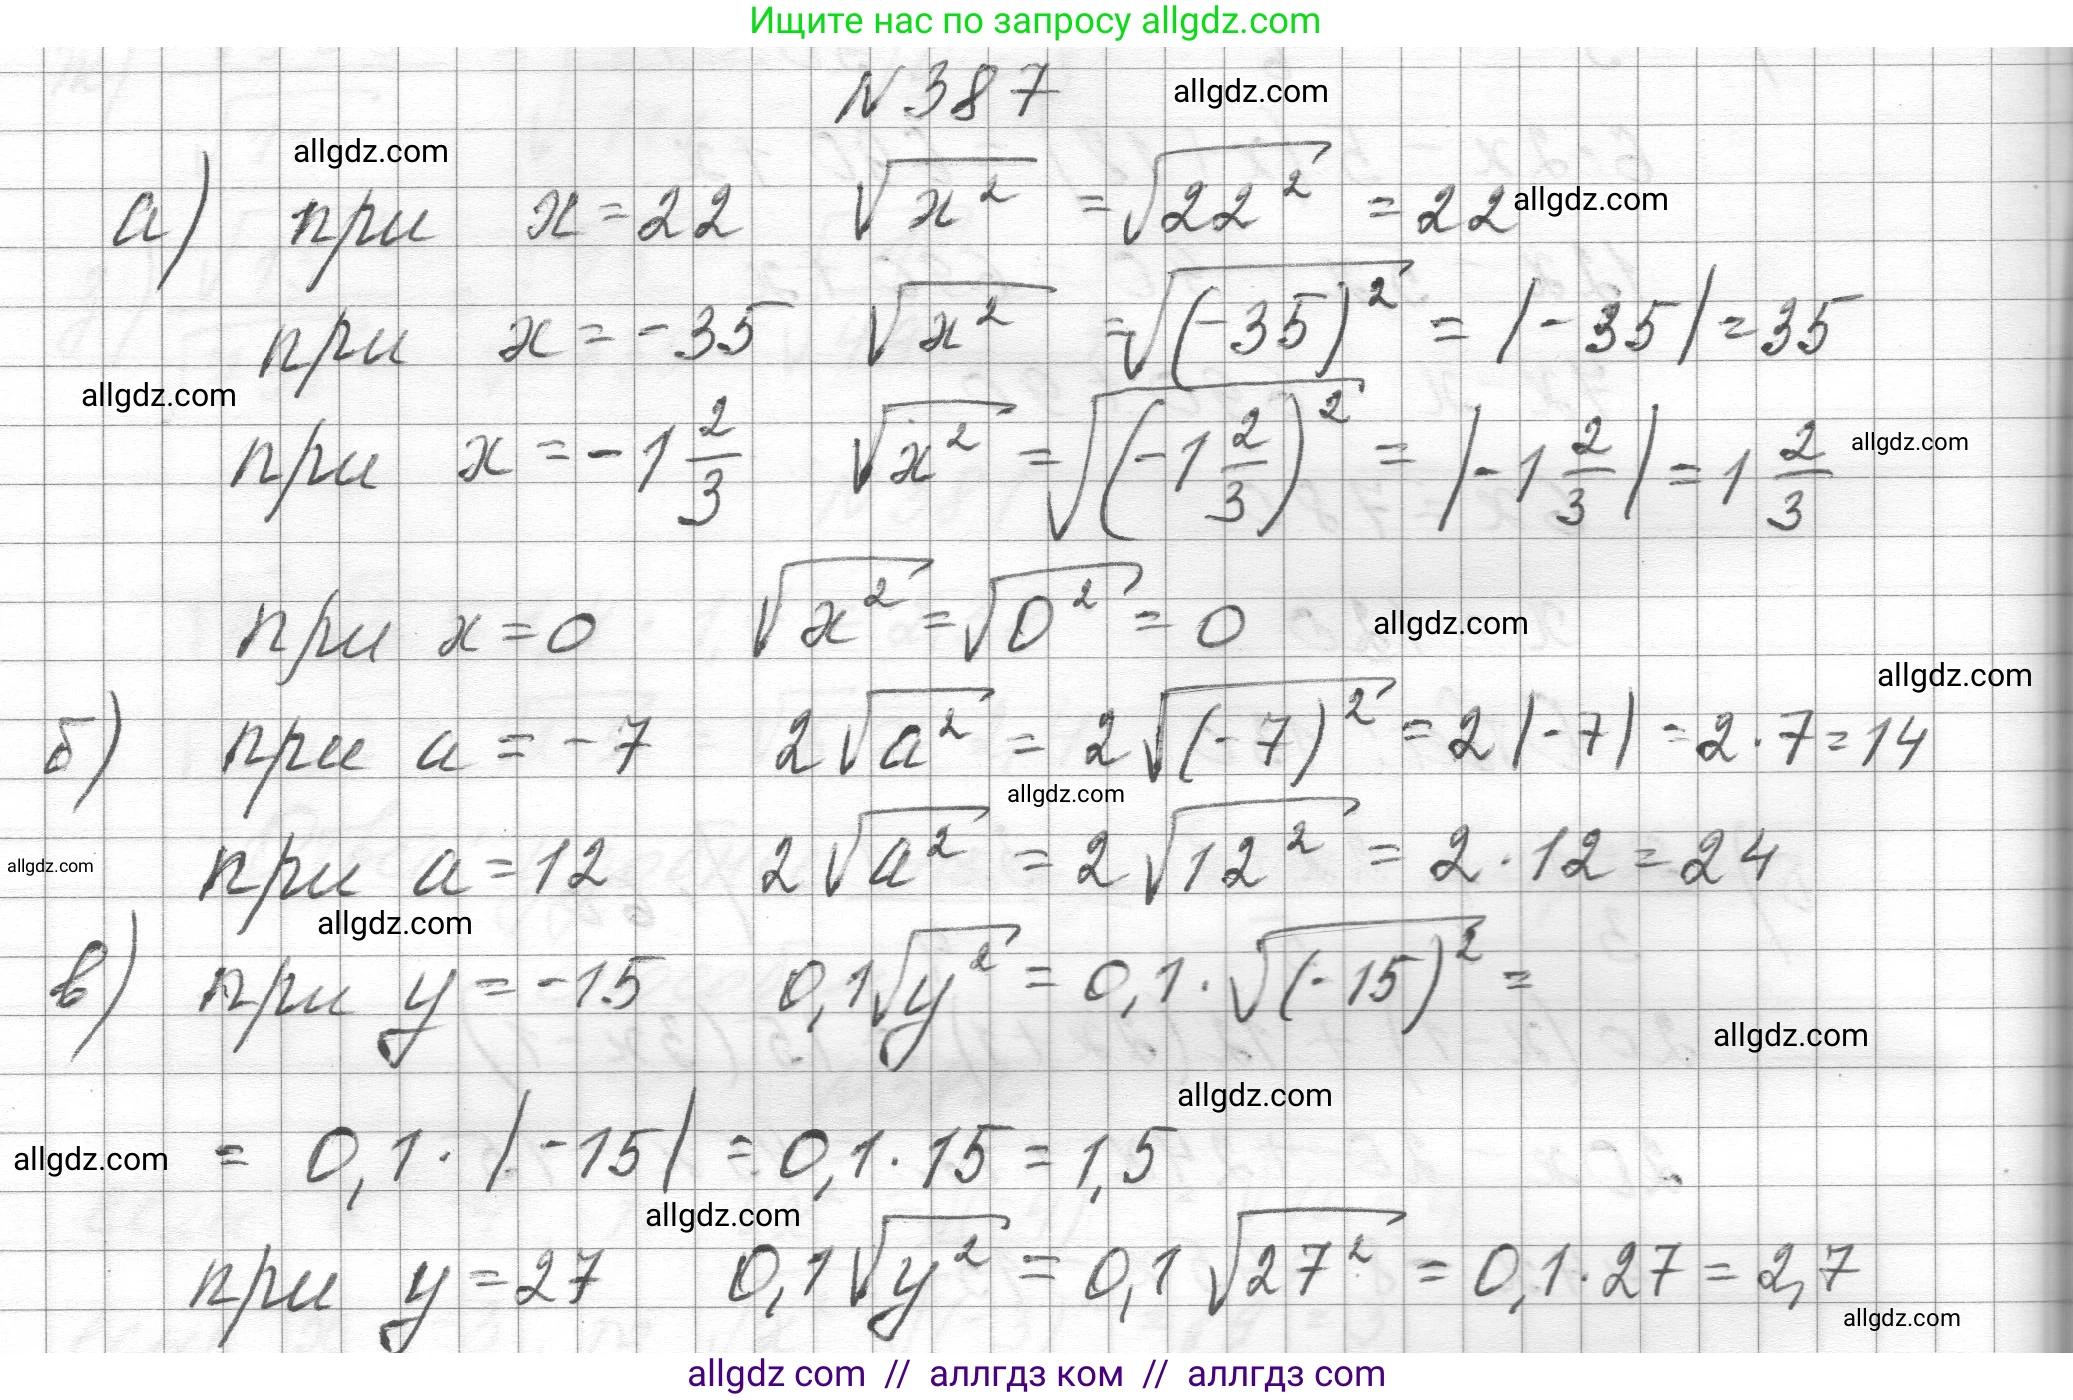 Ищите нас по запросу allgdz.com
N 387 allgdz.com
allgdz.com
а) при x = 22 √x² = √22² = 22 allgdz.com
при x = -35 √x² = √(-35)² = |-35| = 35
allgdz.com
при x = -1 2/3 √x² = √(-1 2/3)² = |-1 2/3| = 1 2/3 allgdz.com
при x = 0 √x² = √0² = 0 allgdz.com
allgdz.com
б) при a = -7 2√a² = 2√(-7)² = 2|-7| = 2·7 = 14
allgdz.com
allgdz.com при a = 12 2√a² = 2√12² = 2·12 = 24
allgdz.com
в) при y = -15 0,1√y² = 0,1·√(-15)² =
allgdz.com
allgdz.com
allgdz.com = 0,1·|-15| = 0,1·15 = 1,5
allgdz.com
при y = 27 0,1√y² = 0,1√27² = 0,1·27 = 2,7
allgdz.com
allgdz com // аллгдз ком // аллгдз com